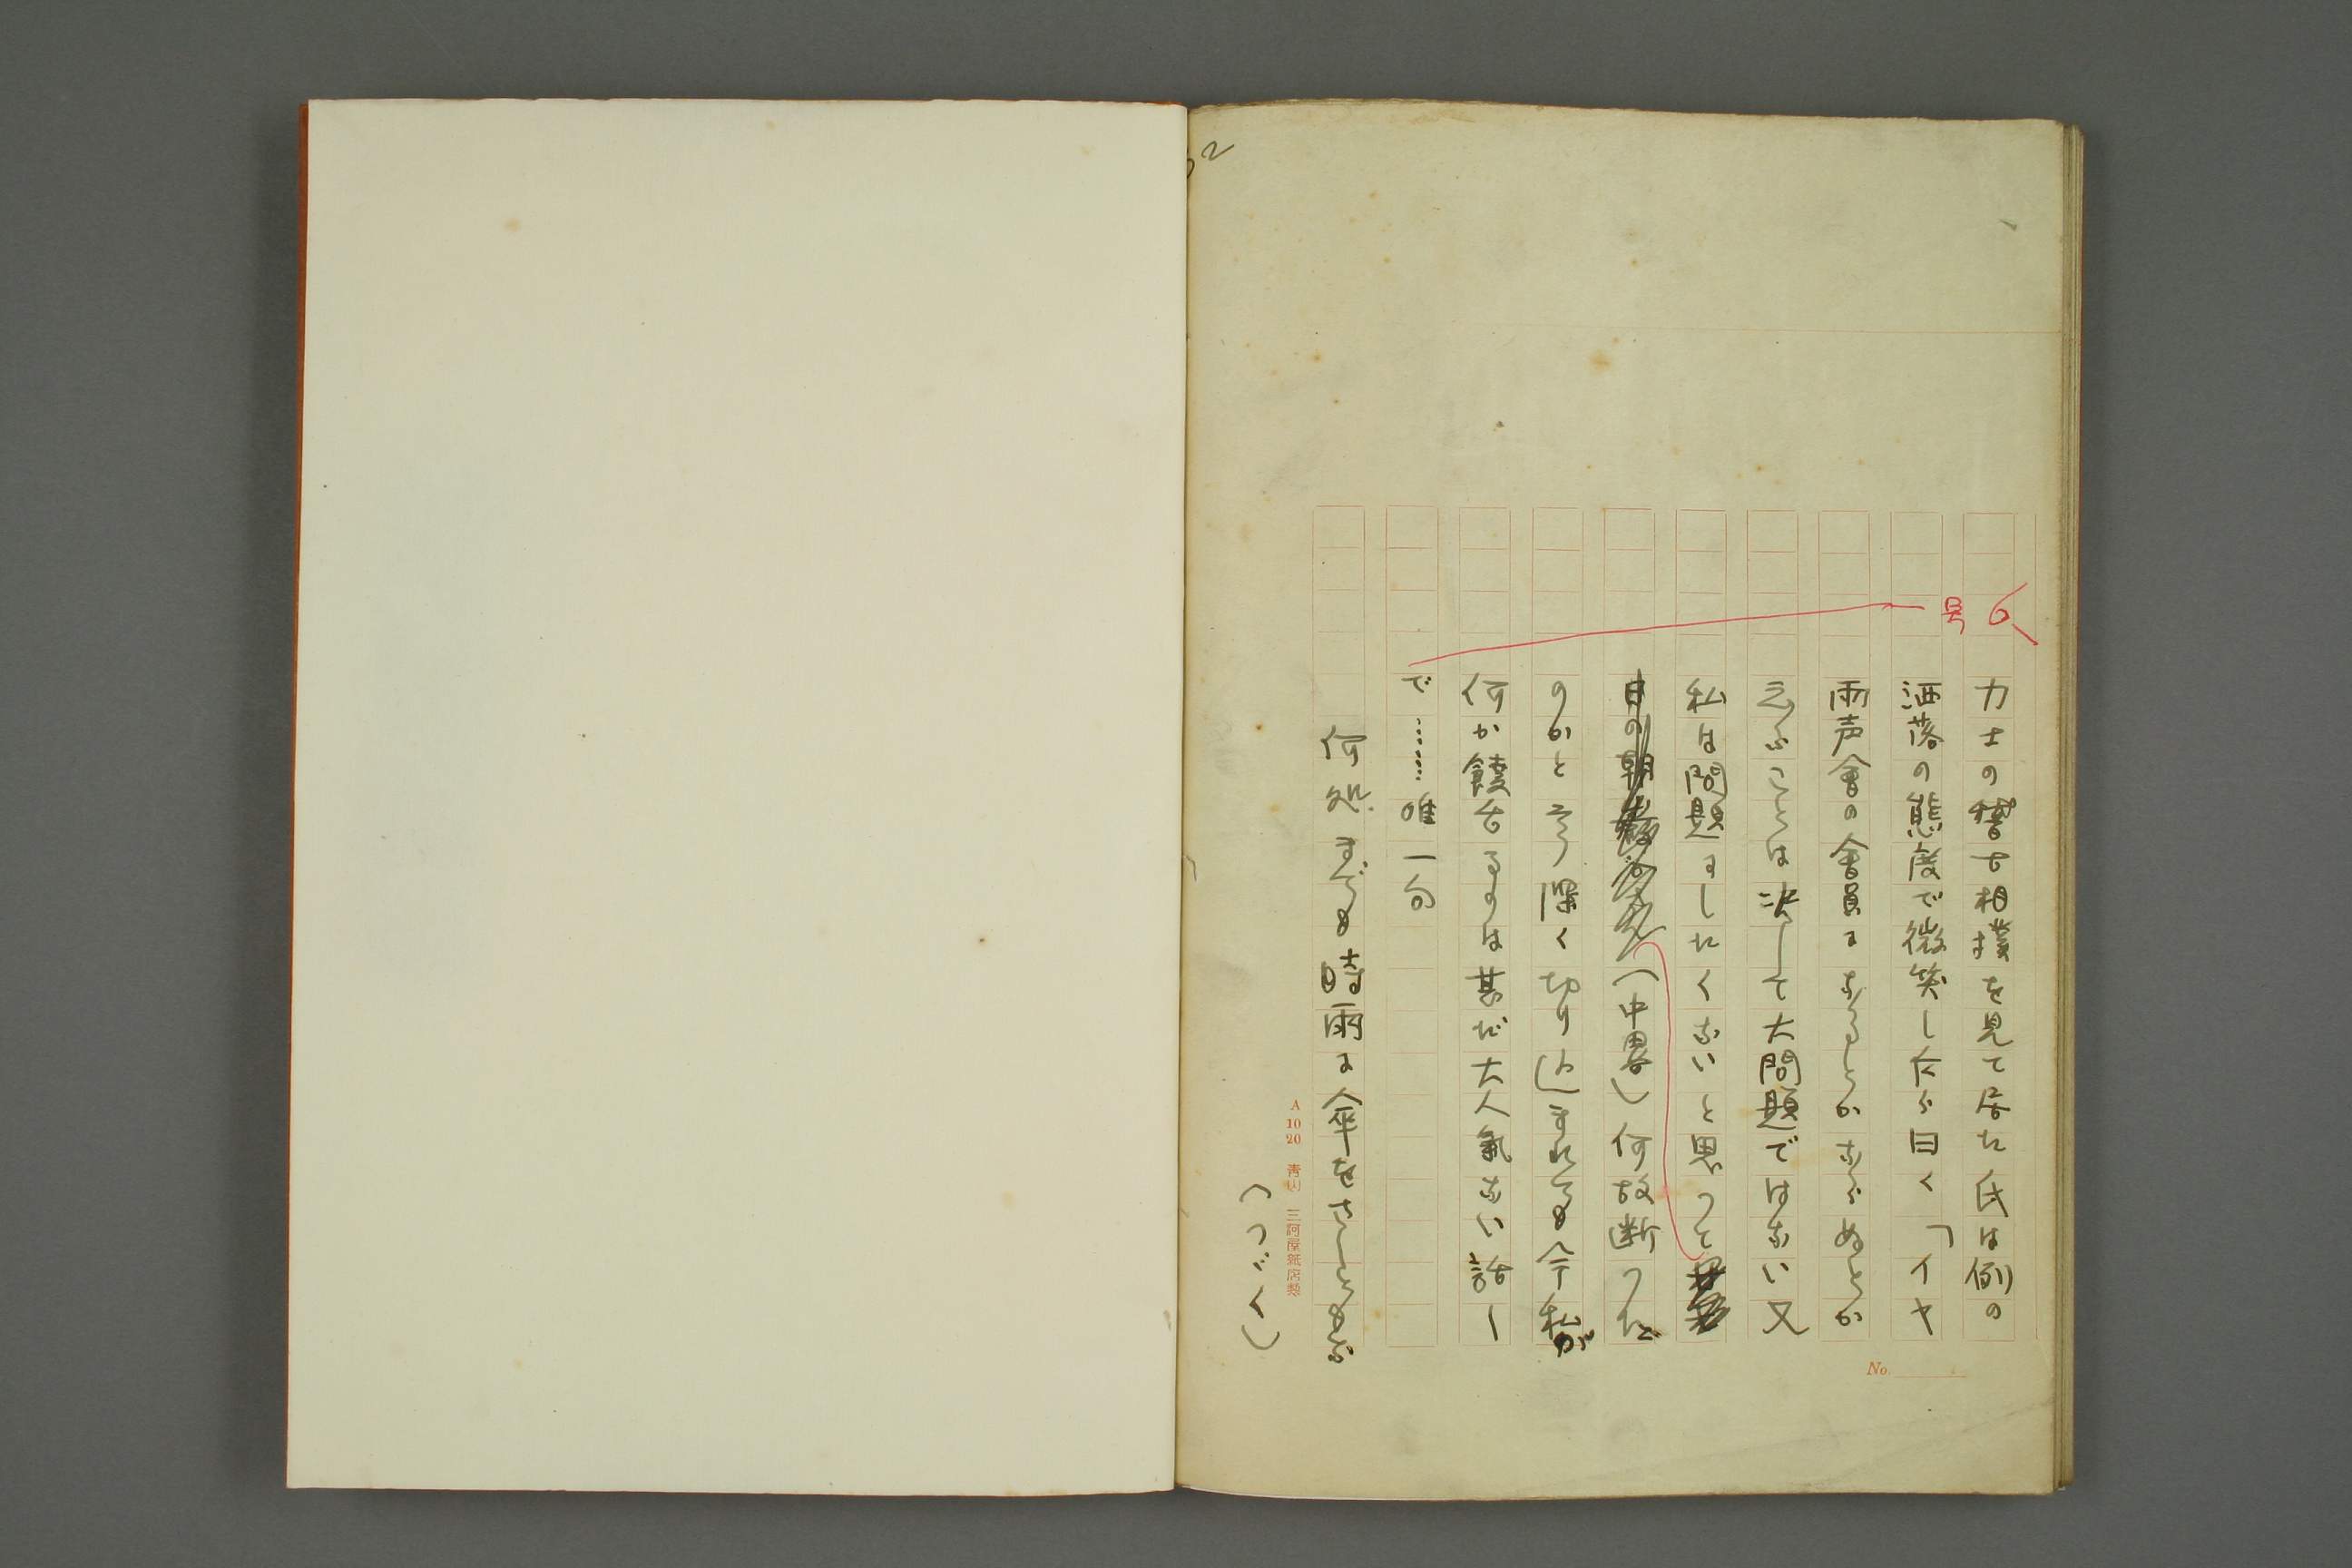 6号
力士の稽古相撲を見て居た氏は例の
洒落の態度で微笑し乍ら曰く「イヤ
雨声會の會員になるとかならぬとか
云ふことは決して大問題ではない又
私は問題にしたくないと思つて
(中畧)何故断つた
のかとそう深く切り込まれても今私が
何か饒舌るのは甚だ大人氣ない話ー
で……唯一句
何処までも時雨に傘をさしともら
(つゞく)
No.
A 10 20 青山 三河屋紙店製